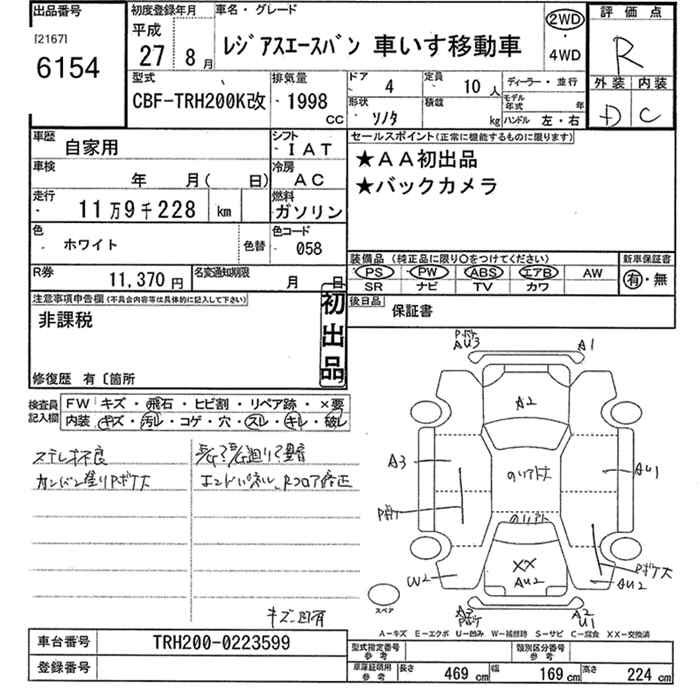 出品番号 初度登録年月 車名・グレード 評価点
[2167] 平成 レジアスエースバン 車いす移動車 2WD R
6154 27年 8月 4WD
型式 排気量 ドア 4 定員 10人 ディーラー・並行 外装 内装
CBF-TRH200K改 1998 CC 形状 ソノタ 積載 kg モデル年式 年 D C
ハンドル 左・右
車歴 自家用 シフト IAT セールスポイント(正常に機能するものに限ります)
車検 年 月( 日) 冷房 AC ★AA初出品
走行 11万9千228 km 燃料 ガソリン ★バックカメラ
色 ホワイト 色替 色コード 058
装備品(純正品に限り○をつけてください) 新車保証書
R券 11,370円 名変通知期限 月 日 PS PW ABS エアB AW 有・無
SR ナビ TV カワ
注意事項申告欄(不具合内容等は具体的に記入して下さい) 初出品 後日品 保証書
非課税
修復歴 有〔箇所
検査員記入欄 FW キズ・飛石・ヒビ割・リペア跡・×要
内装 キズ・汚レ・コゲ・穴・スレ・キレ・破レ
PボケAU3 A1
A2
ステレオ不良
A3 AU1
カンバン塗りPボケ大 エンドパネル、Rフロア修正
Pボケ
XX
AU2
W2 Pボケ大
AU2
スペア
キズ凹有 A2 U1
車台番号 TRH200-0223599
A-キズ E-エクボ U-凹み W-補修跡 S-サビ C-腐食 XX-交換済
登録番号
型式指定番号参考 類別区分番号参考
車庫証明用参考 長さ 469cm 幅 169cm 高さ 224cm